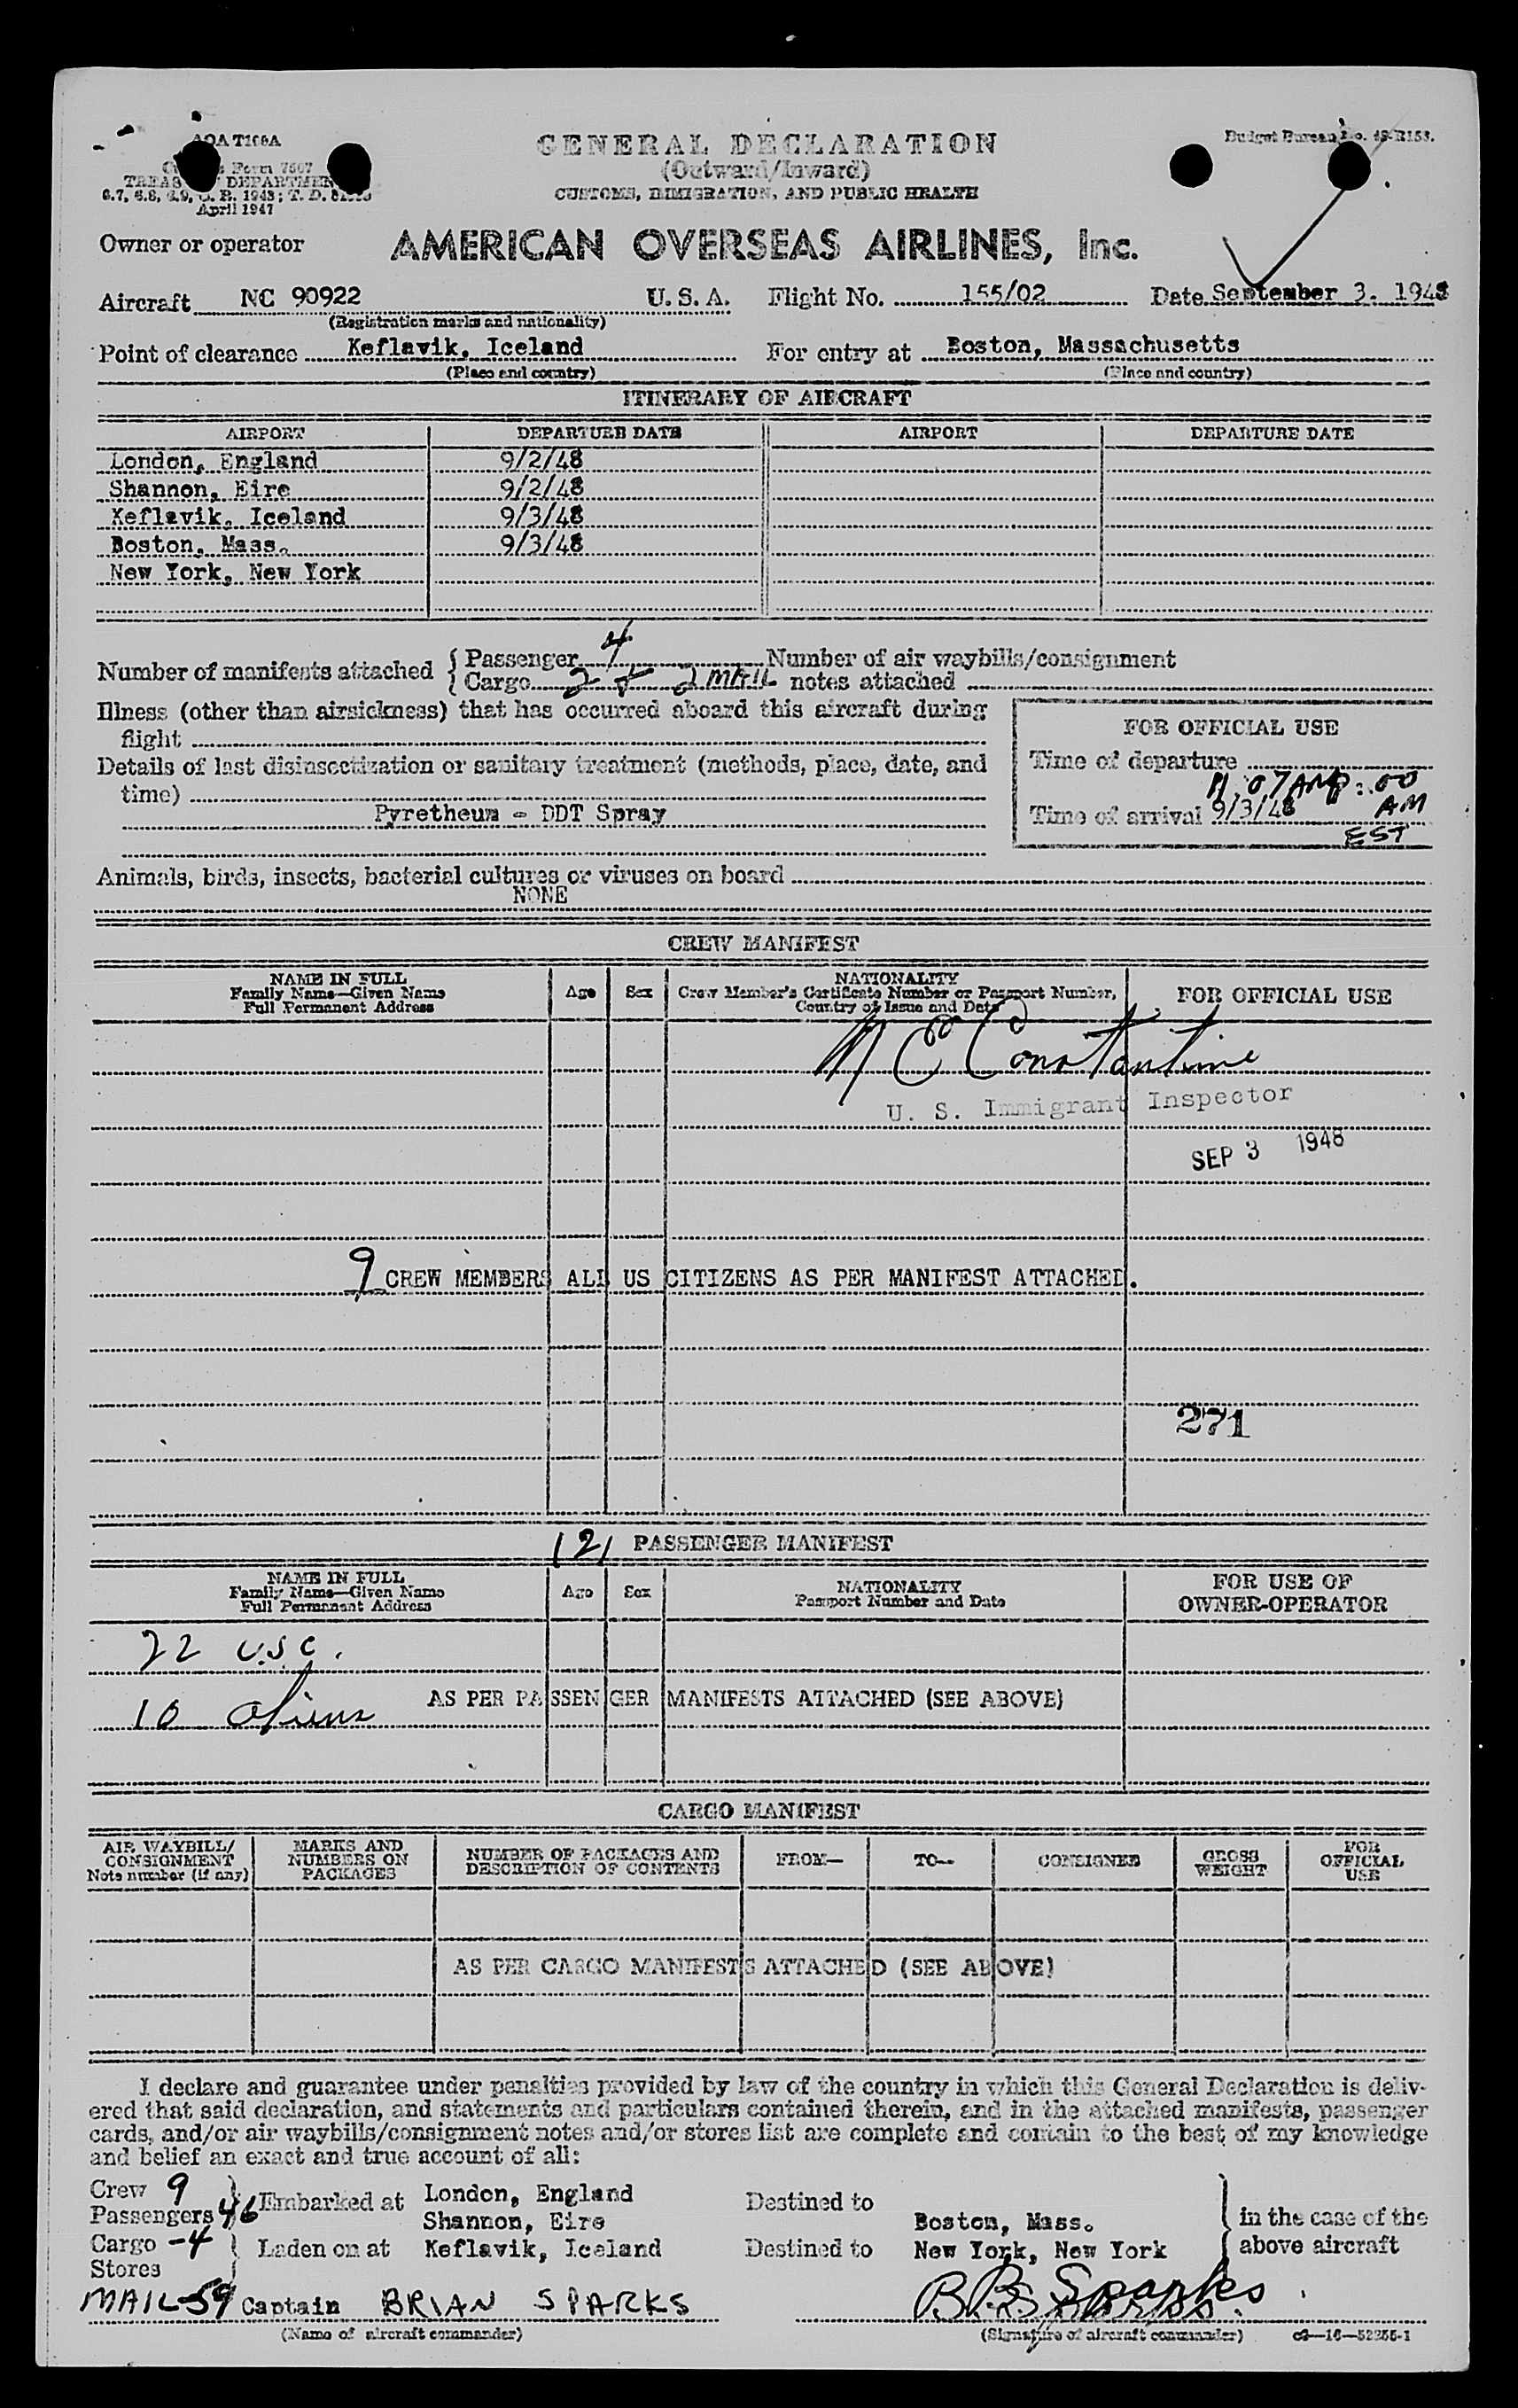 AOA T100A
GENERAL DECLARATION
Budget Bureau No. 48-R153.
Form 7507
(Outward/Inward)
TREAS DEPARTMEN
CUSTOMS, IMMIGRATION, AND PUBLIC HEALTH
6.7, 6.8, 6.9, C. R. 1943; T. D.
April 1947
Owner or operator AMERICAN OVERSEAS AIRLINES, Inc.
Aircraft NC 90922 U. S. A. Flight No. 155/02 Date September 3. 1948
(Registration marks and nationality)
Point of clearance Keflavik, Iceland For entry at Boston, Massachusetts
(Place and country) (Place and country)
ITINERARY OF AIRCRAFT
AIRPORT DEPARTURE DATE AIRPORT DEPARTURE DATE
London, England 9/2/48
Shannon, Eire 9/2/48
Keflavik, Iceland 9/3/48
Boston, Mass. 9/3/48
New York, New York
Number of manifests attached { Passenger 4 Number of air waybills/consignment
Cargo 2 & 2 MAIL notes attached
Illness (other than airsickness) that has occurred aboard this aircraft during
flight
FOR OFFICIAL USE
Details of last disinsectization or sanitary treatment (methods, place, date, and
time)
Pyretheum - DDT Spray
Time of departure
Time of arrival 9/3/48 AM
EST
Animals, birds, insects, bacterial cultures or viruses on board
NONE
CREW MANIFEST
NAME IN FULL Age Sex NATIONALITY FOR OFFICIAL USE
Family Name—Given Name Crew Member's Certificate Number or Passport Number,
Full Permanent Address Country of Issue and Date
M E Constantine
U. S. Immigrant Inspector
SEP 3 1948
9 CREW MEMBERS ALL US CITIZENS AS PER MANIFEST ATTACHED.
271
121 PASSENGER MANIFEST
NAME IN FULL Age Sex NATIONALITY FOR USE OF
Family Name—Given Name Passport Number and Date OWNER-OPERATOR
Full Permanent Address
22 U.S.C.
10 aliens AS PER PASSENGER MANIFESTS ATTACHED (SEE ABOVE)
CARGO MANIFEST
AIR WAYBILL/ MARKS AND NUMBER OF PACKAGES AND FROM— TO— CONSIGNEE GROSS FOR
CONSIGNMENT NUMBERS ON DESCRIPTION OF CONTENTS WEIGHT OFFICIAL
Note number (if any) PACKAGES USE
AS PER CARGO MANIFESTS ATTACHED (SEE ABOVE)
I declare and guarantee under penalties provided by law of the country in which this General Declaration is deliv-
ered that said declaration, and statements and particulars contained therein, and in the attached manifests, passenger
cards, and/or air waybills/consignment notes and/or stores list are complete and contain to the best of my knowledge
and belief an exact and true account of all:
Crew 9 London, England
Passengers 46 } Embarked at Shannon, Eire Destined to Boston, Mass. in the case of the
Cargo -4 } Laden on at Keflavik, Iceland Destined to New York, New York above aircraft
Stores
MAIL-59 Captain BRIAN SPARKS B.B. Sparks.
(Name of aircraft commander) (Signature of aircraft commander) c2—16—52255-1